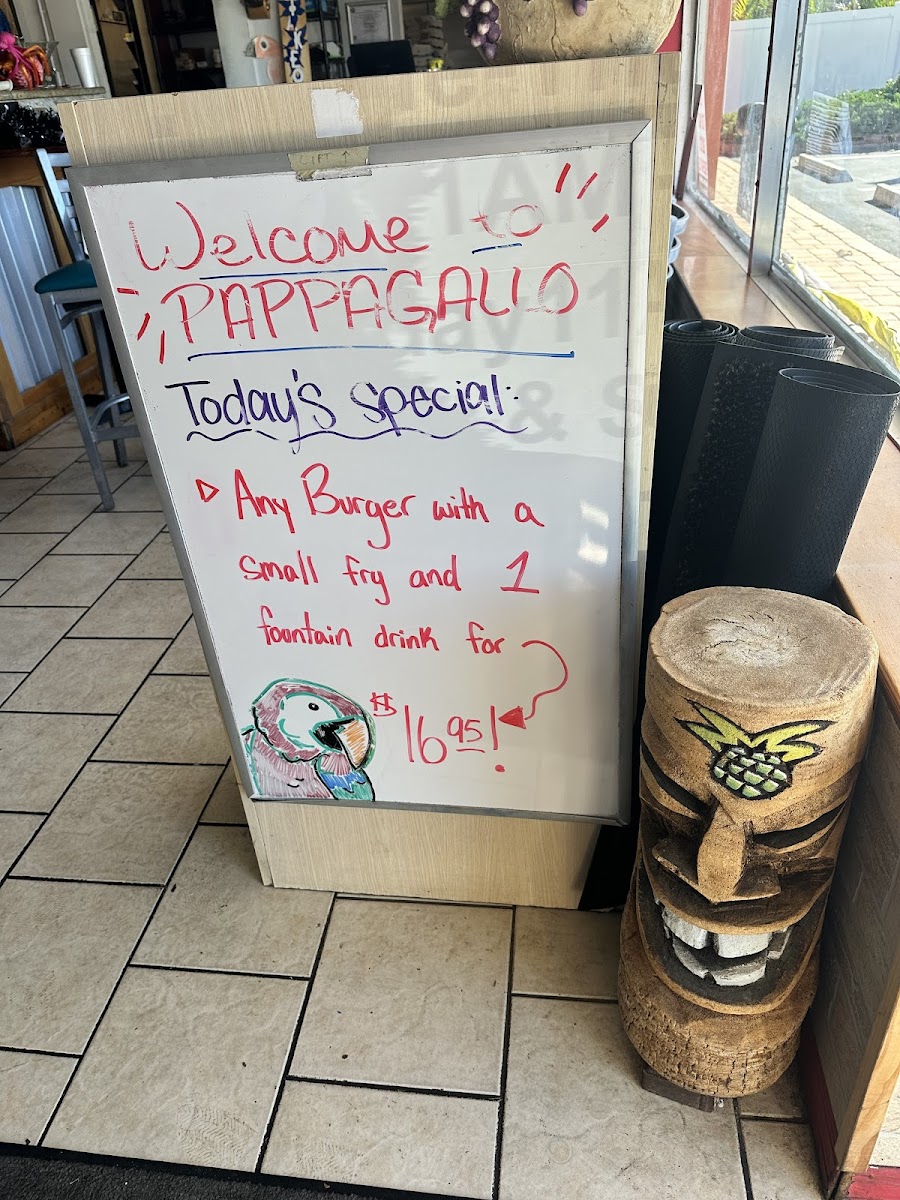 LIFT ↑
Welcome to
PAPPAGALLO
Today's special:
Any Burger with a
small fry and 1
fountain drink for
$16.95!